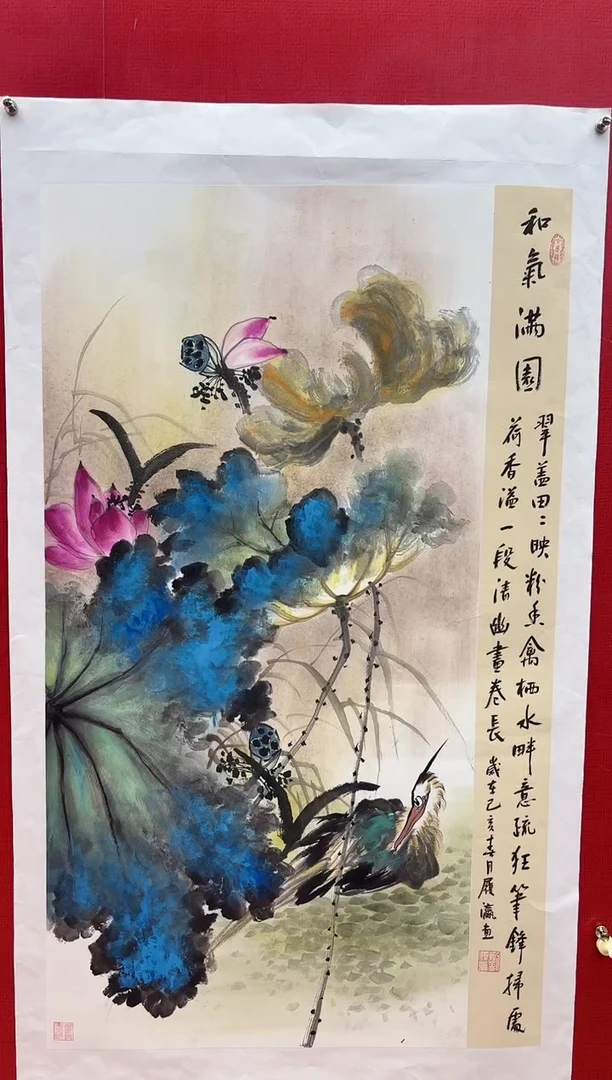 和氣滿園
翠蓋田〻映粉香禽栖水畔意疏狂筆鋒掃處
荷香溢一段清幽畫卷長
歲在己亥春月履瀛畫